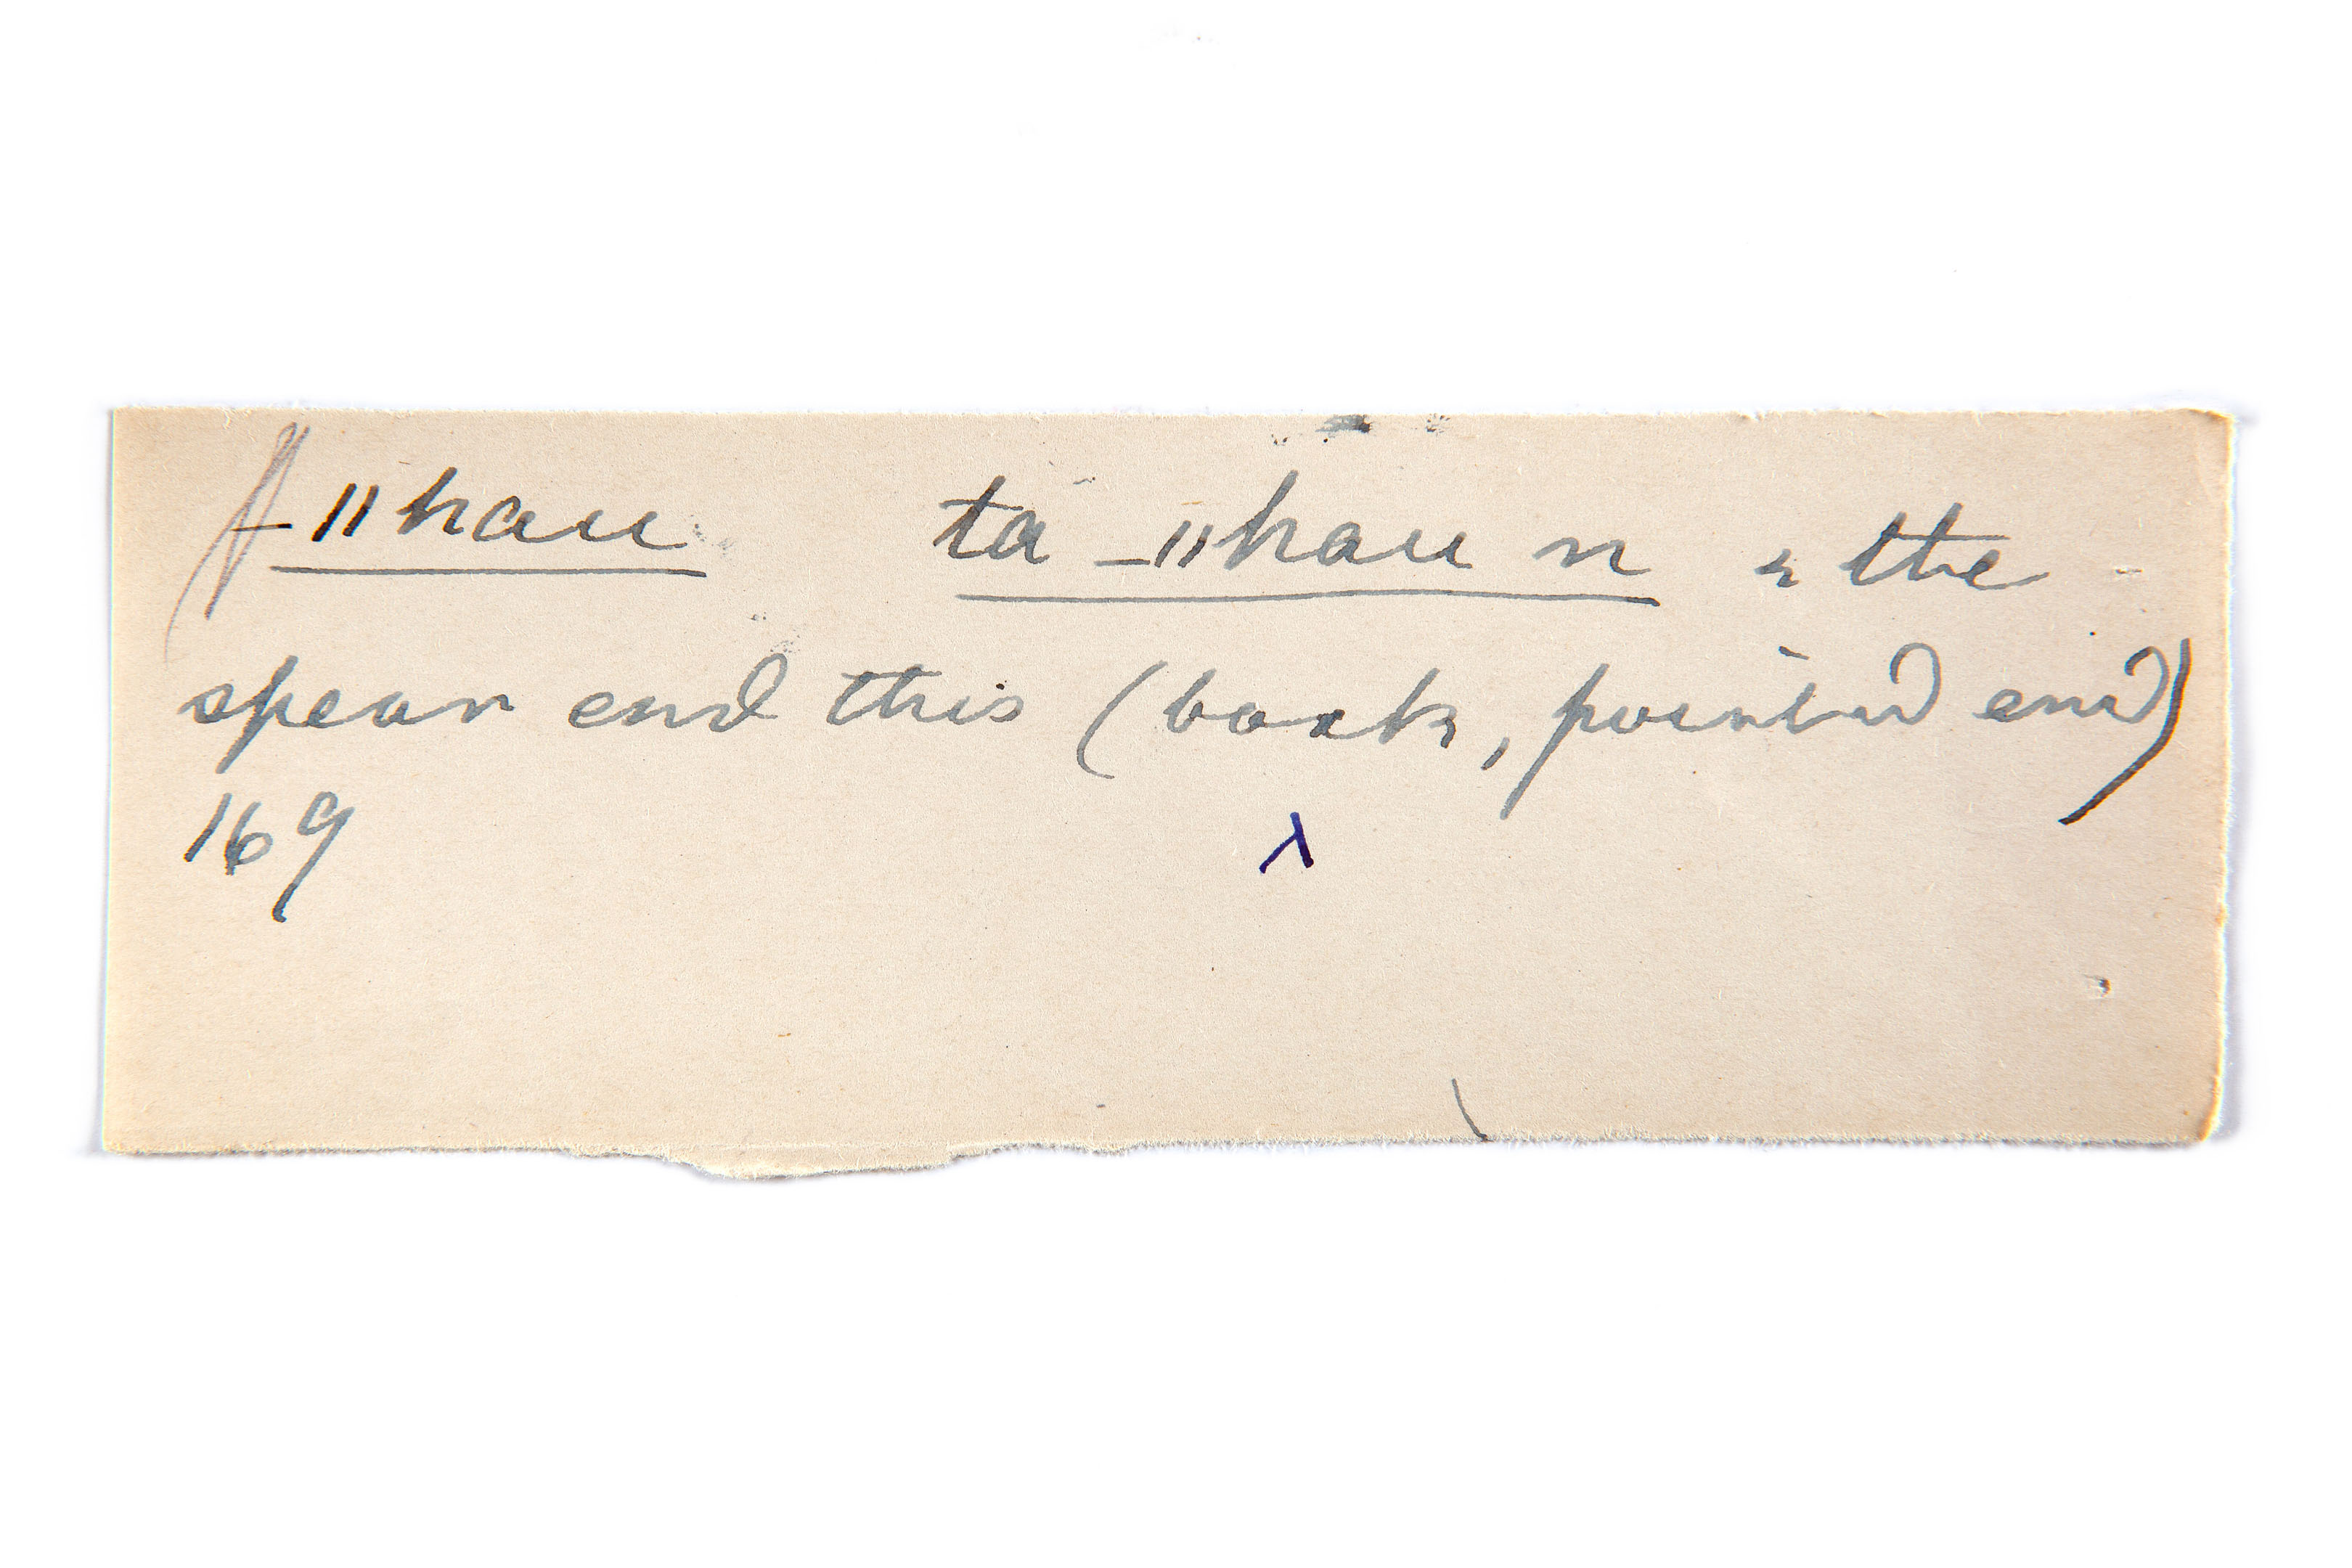 –ǁhau ta –ǁhau n = the
spear end this (back, pointed end)
169
λ